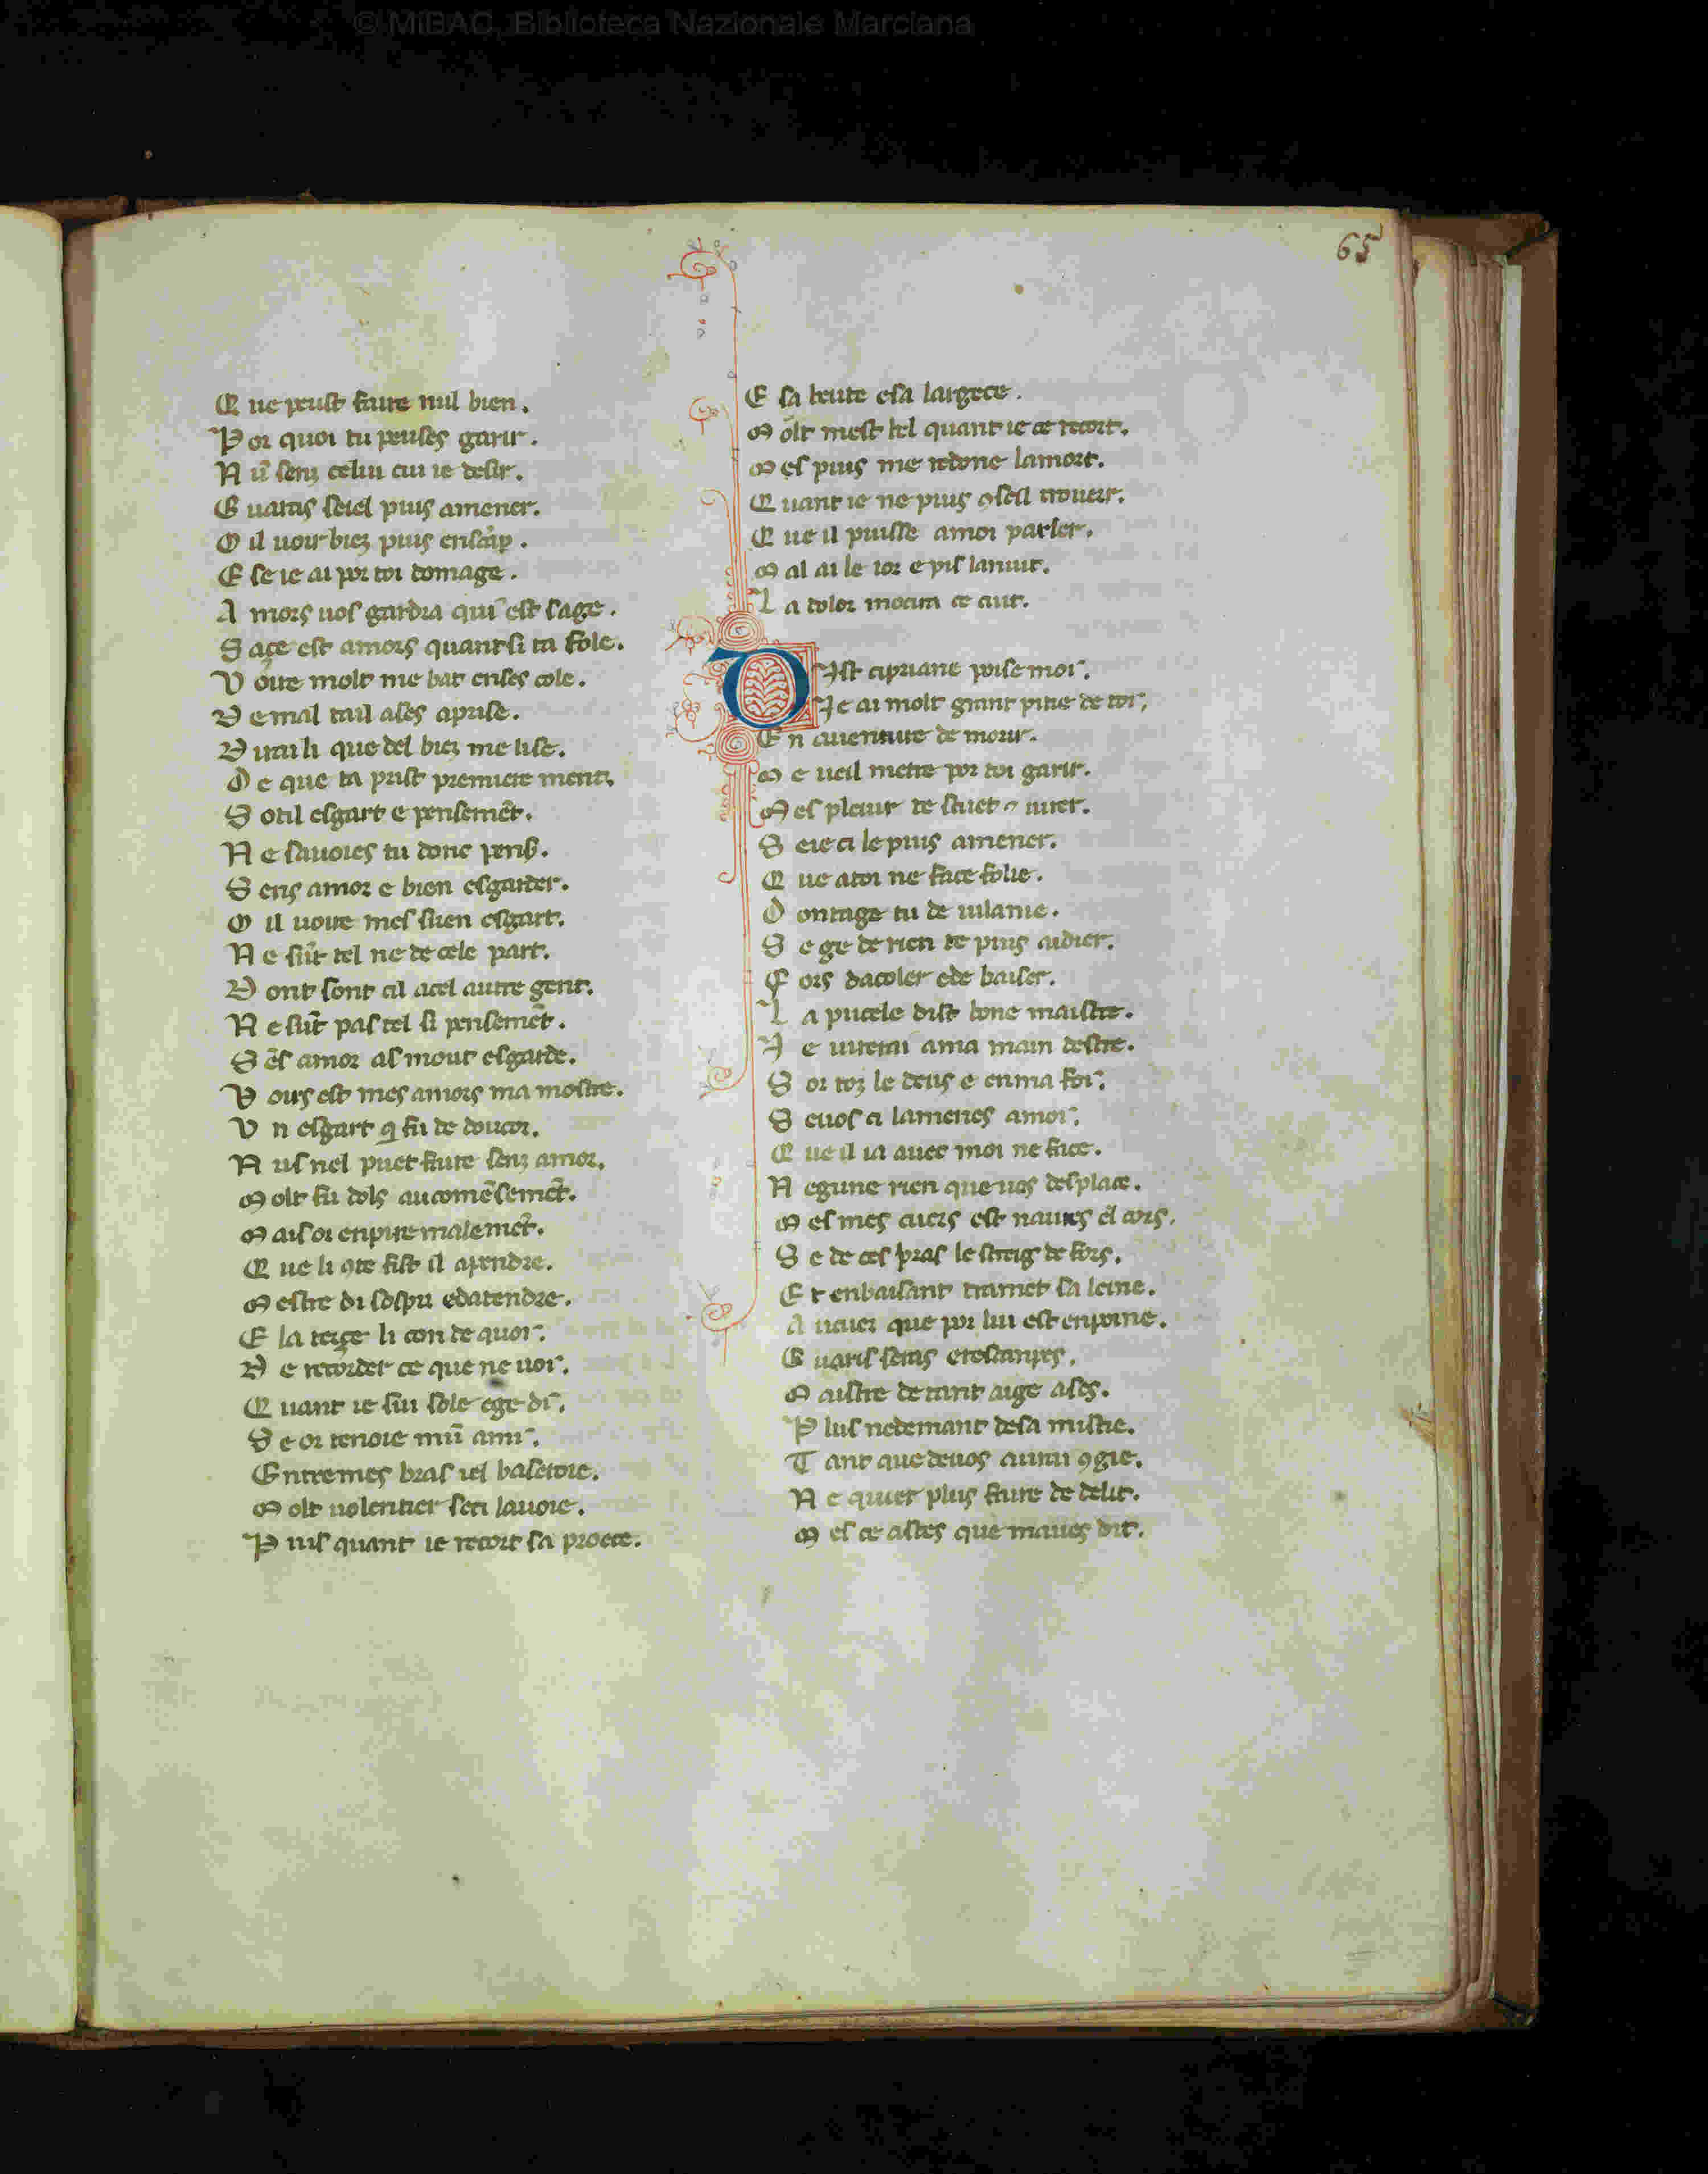 © MiBAC, Biblioteca Nazionale Marciana
65
Q ue peust faire nul bien.
P or quoi tu peuses garir.
N ū senz celui cui ie desir.
G uaras seiel puis amener.
O il uoir biez puis
E se ie ai por toi domage.
A mors uos gardra qui est sage.
S age est amors quant si ta fole.
V oire molt me bat enses cole.
D e mal tail ases aprise.
D irai li que del biez me lise.
D e que ta prist premiere ment.
S otil esgart e pensemēt.
N e sauoies tu donc pens.
S ens amor e bien esgarder.
O il uoire mes suen esgart.
N e sūt tel ne de cele part.
D ont sont cil acel autre gent.
N e sūt pas tel si pensemēt.
S ēs amor al mont esgarde.
V oirs est mes amors ma mostre.
V n esgart q fu de doucor.
N us nel puet faire senz amor.
M olt fu dols aucomēsemēt.
M ais or enpire malemēt.
Q ue li 9te fist il aprendre.
M estre di sospir edatendre.
E la terge li con de quoi.
D e recorder ce que ne uoi.
Q uant ie sui sole ege di.
S e or tenoie mū ami.
Entremes bras iel baseroie.
M olt uolentier seu lauoie.
P uis quant ie recort sa proece.
E sa beute esa largece.
M olt mest bel quant ie ce recort.
M es puis me redone lamort.
Q uant ie ne puis 9seil trouer.
Q ue il puisse amoi parler.
M al ai le ior e pis lanuit.
L a dolor mocira ce cuit.
D Ist cipriane poise moi.
Je ai molt grant pitie de toi,
E n auenture de morir.
M e ueil metre por toi garir.
M es pleuir te stuet 7 iurer.
S eie ci le puis amener.
Q ue atoi ne face folie.
D ontage tu de uilanie.
S e ge de rien te puis aidier.
F ors dacoler ede baiser.
L a pucele dist bone maistre.
J e iurerai ama main destre.
S or toz le deus e enma foi.
S euos ci lamenes amoi.
Q ue il ia auec moi ne face.
N egune rien que uos desplace.
M es mes cuers est naures el cors.
S e de ces bras le streig de fors.
E t enbaisant tramet sa leine.
A ucuer que por lui est enpeine.
G uaris seras
M aistre de tant aige ases.
P lus nedemant desa mistie.
T ant que deuos aurai 9gie.
N e quier plus faire de delit.
M es ce astes que maues dit.